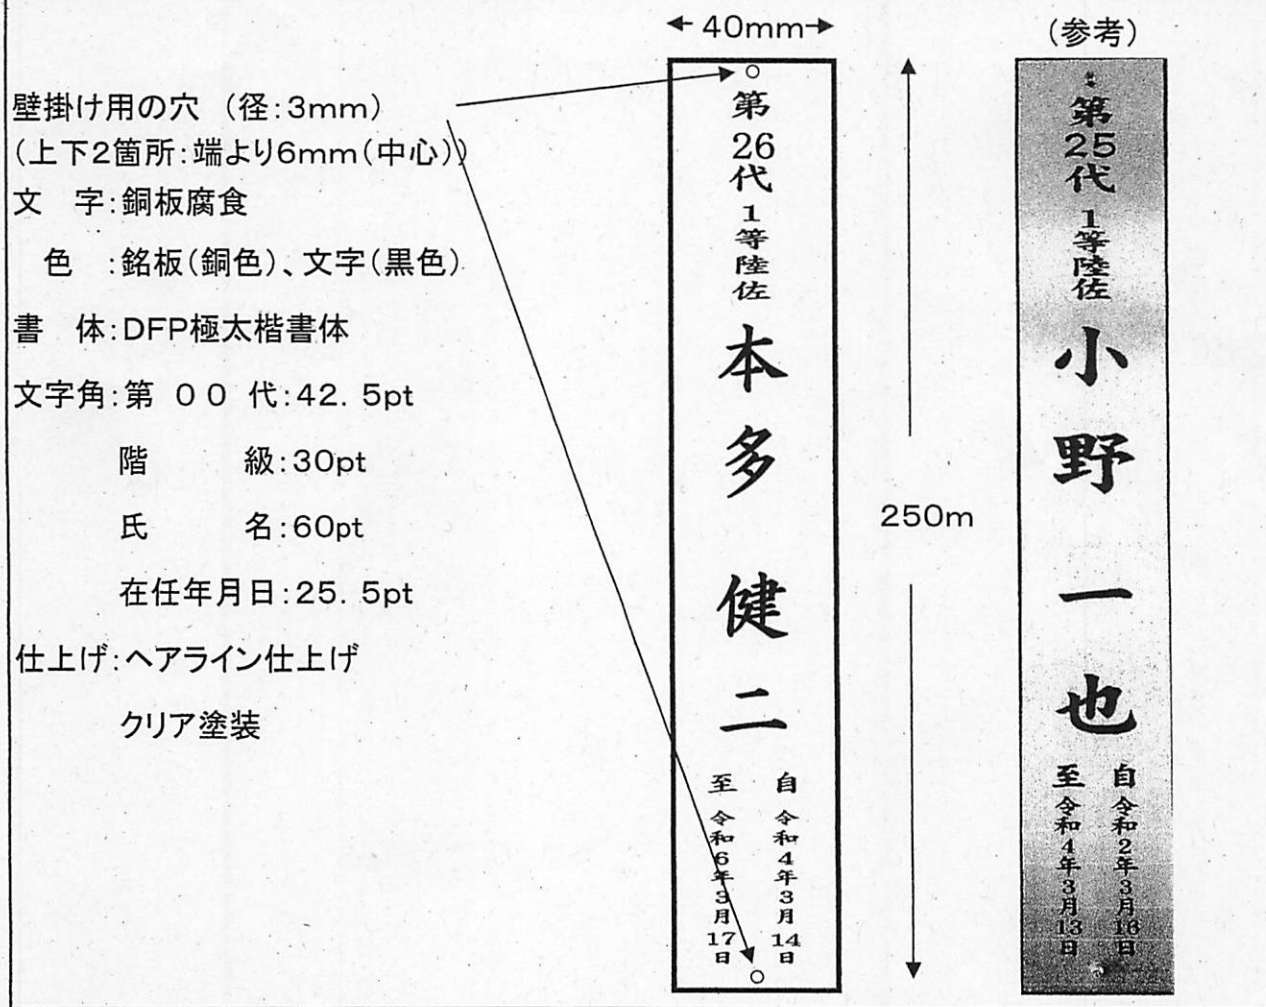 壁掛け用の穴 (径:3mm)
(上下2箇所:端より6mm(中心))
文 字:銅板腐食
色 :銘板(銅色)、文字(黒色)
書 体:DFP極太楷書体
文字角:第 00 代:42.5pt
階 級:30pt
氏 名:60pt
在任年月日:25.5pt
仕上げ:ヘアライン仕上げ
クリア塗装
40mm
第26代 1等陸佐 本多健二
自 令和4年3月14日
至 令和6年3月17日
250m
(参考)
第25代 1等陸佐 小野一也
自 令和2年3月16日
至 令和4年3月13日